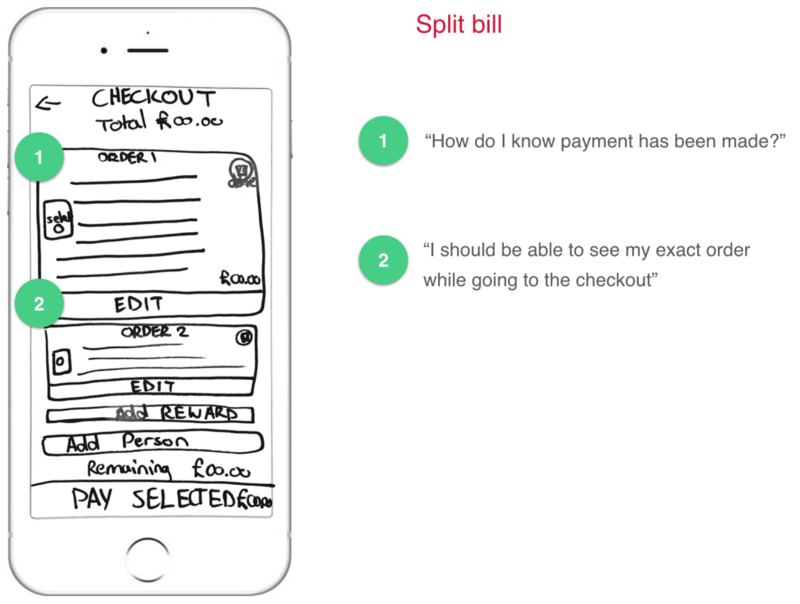 Split bill
←
CHECKOUT
Total £00.00
1
ORDER 1
select
£00.00
2
EDIT
ORDER 2
EDIT
Add REWARD
Add Person
Remaining £00.00
PAY SELECTED £00.00
1
“How do I know payment has been made?”
2
“I should be able to see my exact order
while going to the checkout”